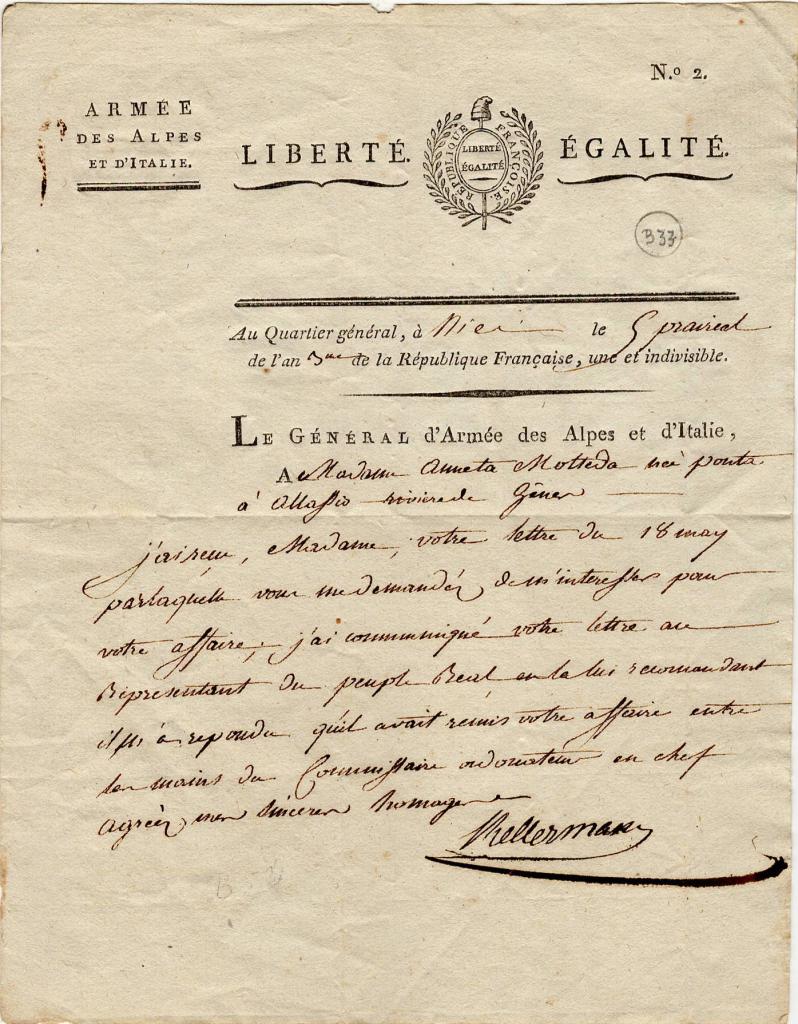 N.º 2.
ARMÉE
DES ALPES
ET D'ITALIE.
LIBERTÉ.
RÉPUBLIQUE FRANÇOISE.
LIBERTÉ
ÉGALITÉ
ÉGALITÉ.
B 33
Au Quartier général, à Nice le 5 prairial
de l'an 3me de la République Française, une et indivisible.
LE GÉNÉRAL d'Armée des Alpes et d'Italie,
A Madame Anneta Motteda neé ponta
à Allassio riviere de Gênes
j'ai reçu, Madame, votre lettre du 18 may
par laquelle vous me demandéz de m'interesser pour
votre affaire; j'ai communiqué votre lettre au
Representant du peuple Beal en la lui recomandant
il m'à repondu qu'il avait remis votre affaire entre
les mains du Commissaire ordonateur en chef
agréez mes sinceres homages
Kellermann